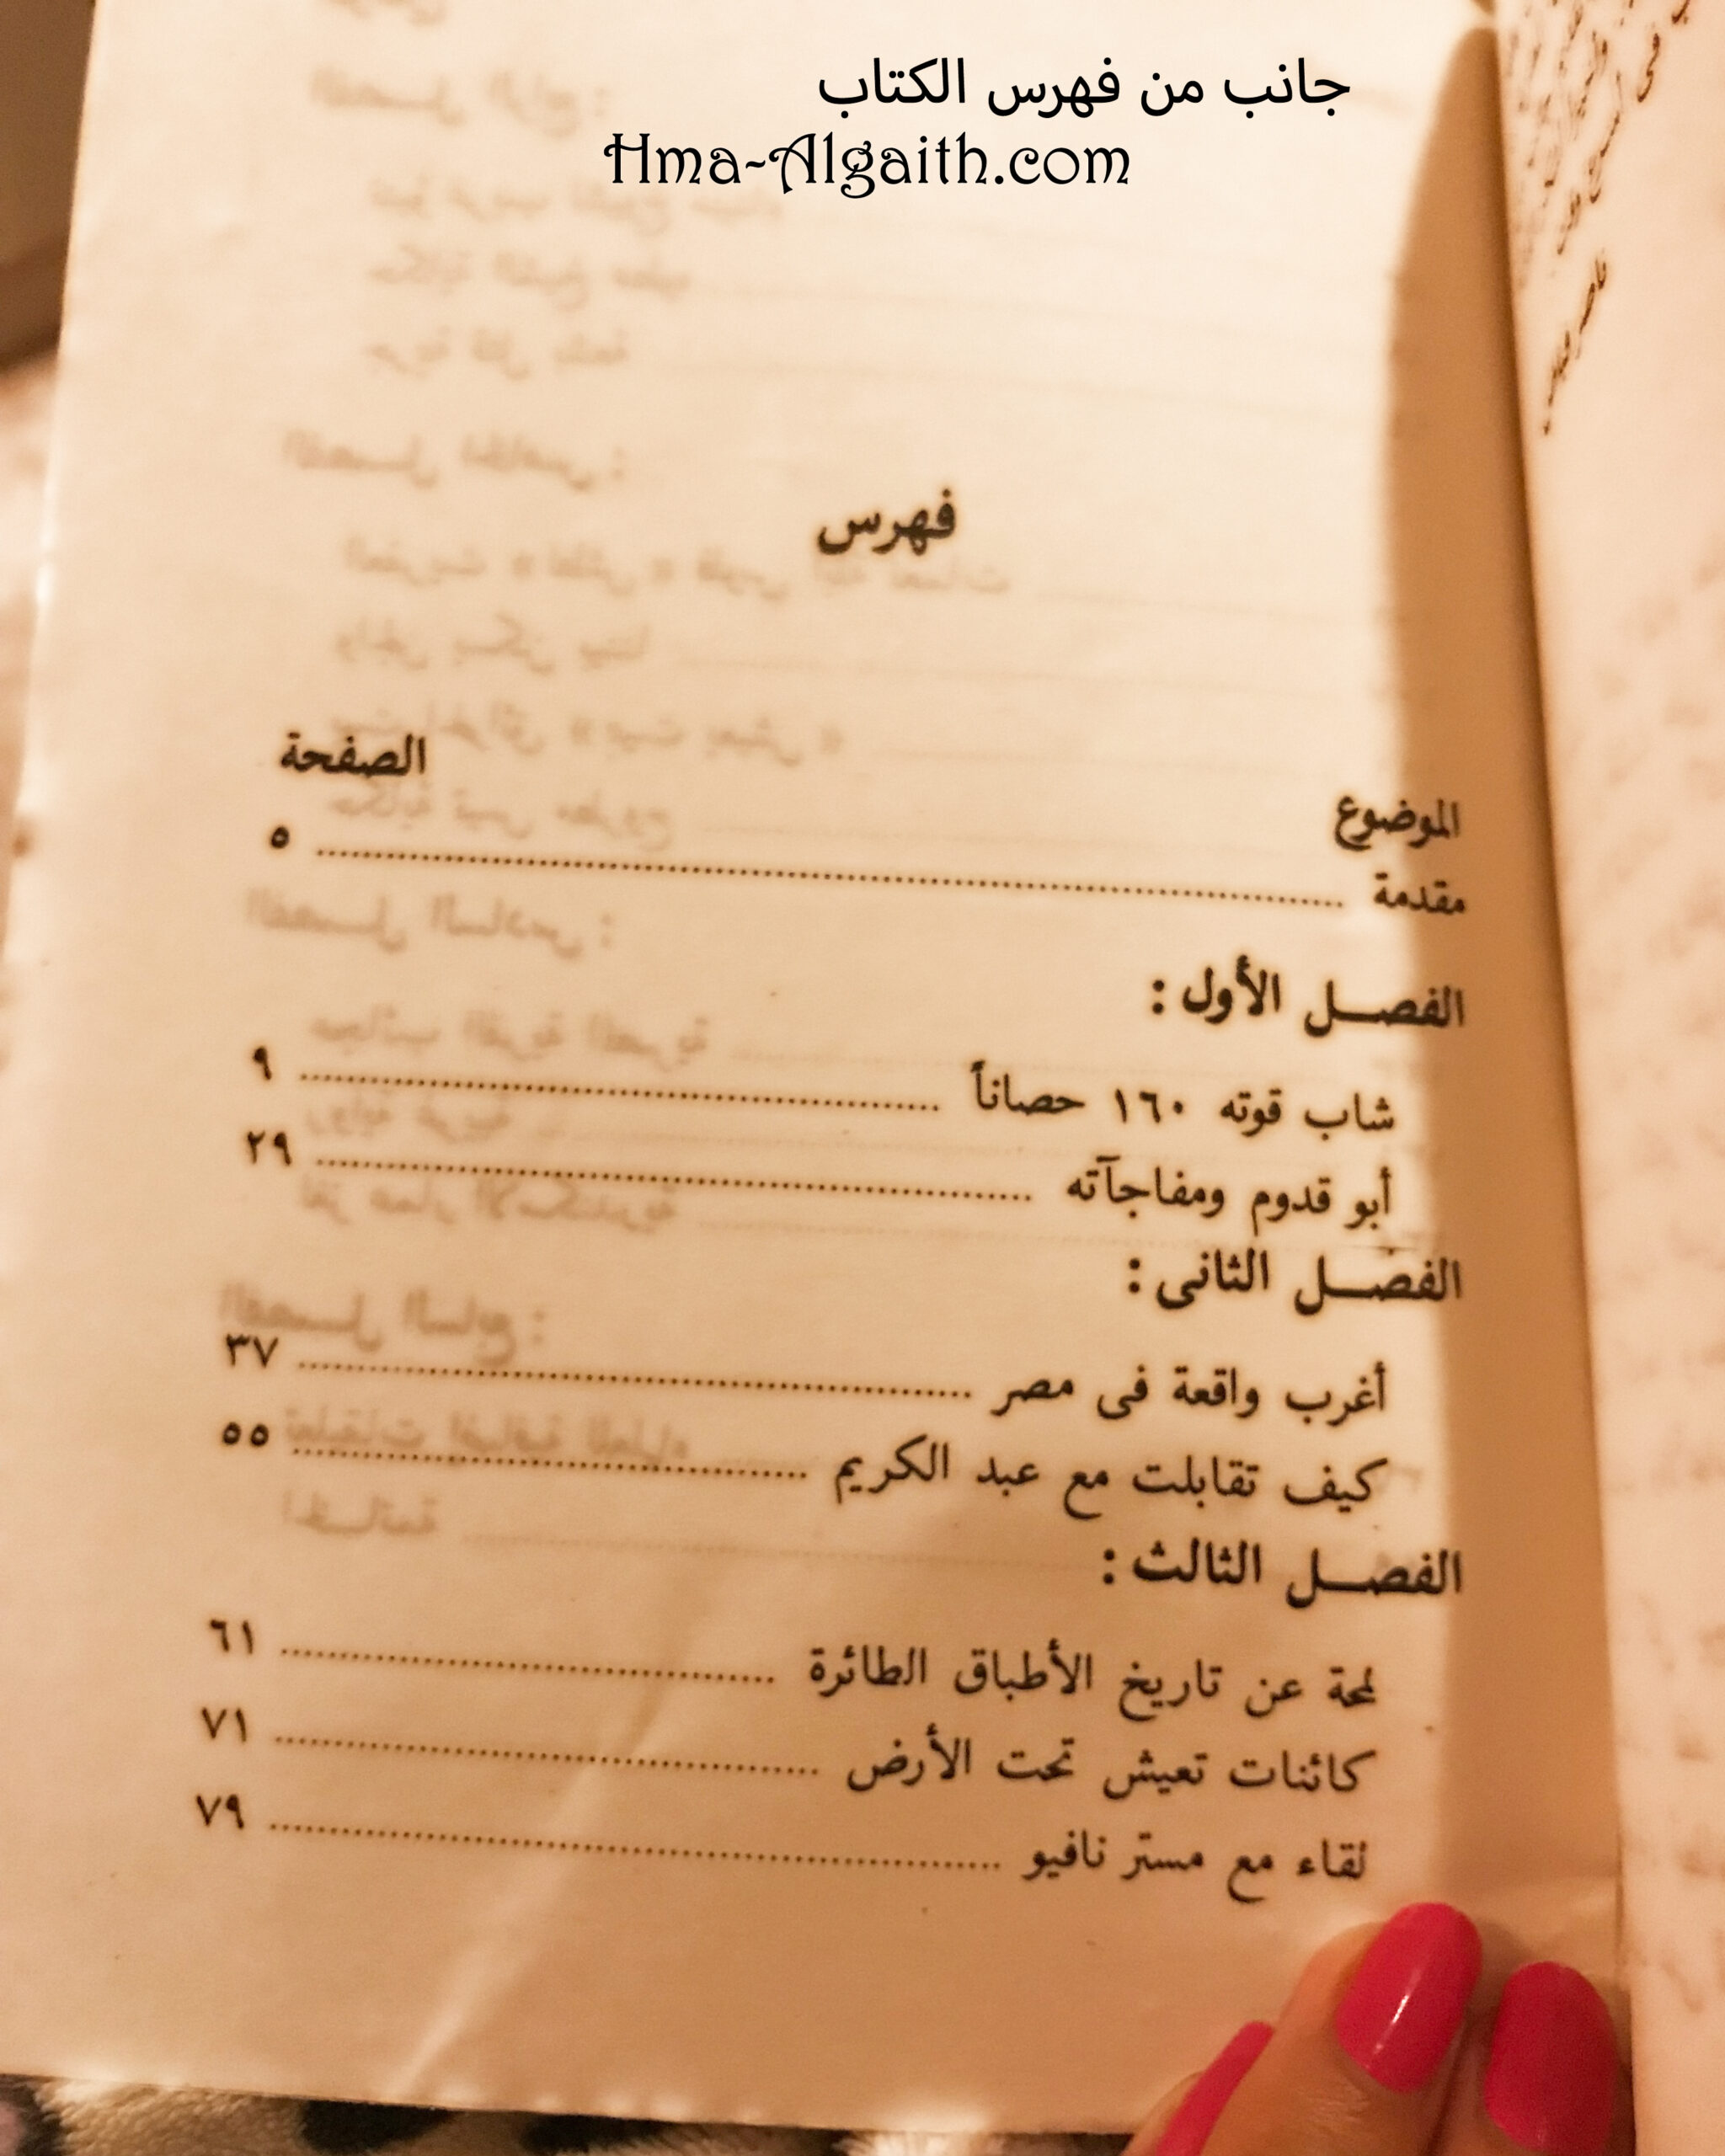 جانب من فهرس الكتاب
Hma-Algaith.com
فهرس
الموضوع الصفحة
مقدمة ........ ٥
الفصـــل الأول :
شاب قوته ١٦٠ حصاناً ........ ٩
أبو قدوم ومفاجآته ........ ٢٩
الفصـــل الثانى :
أغرب واقعة فى مصر ........ ٣٧
كيف تقابلت مع عبد الكريم ........ ٥٥
الفصـــل الثالث :
لمحة عن تاريخ الأطباق الطائرة ........ ٦١
كائنات تعيش تحت الأرض ........ ٧١
لقاء مع مستر نافيو ........ ٧٩